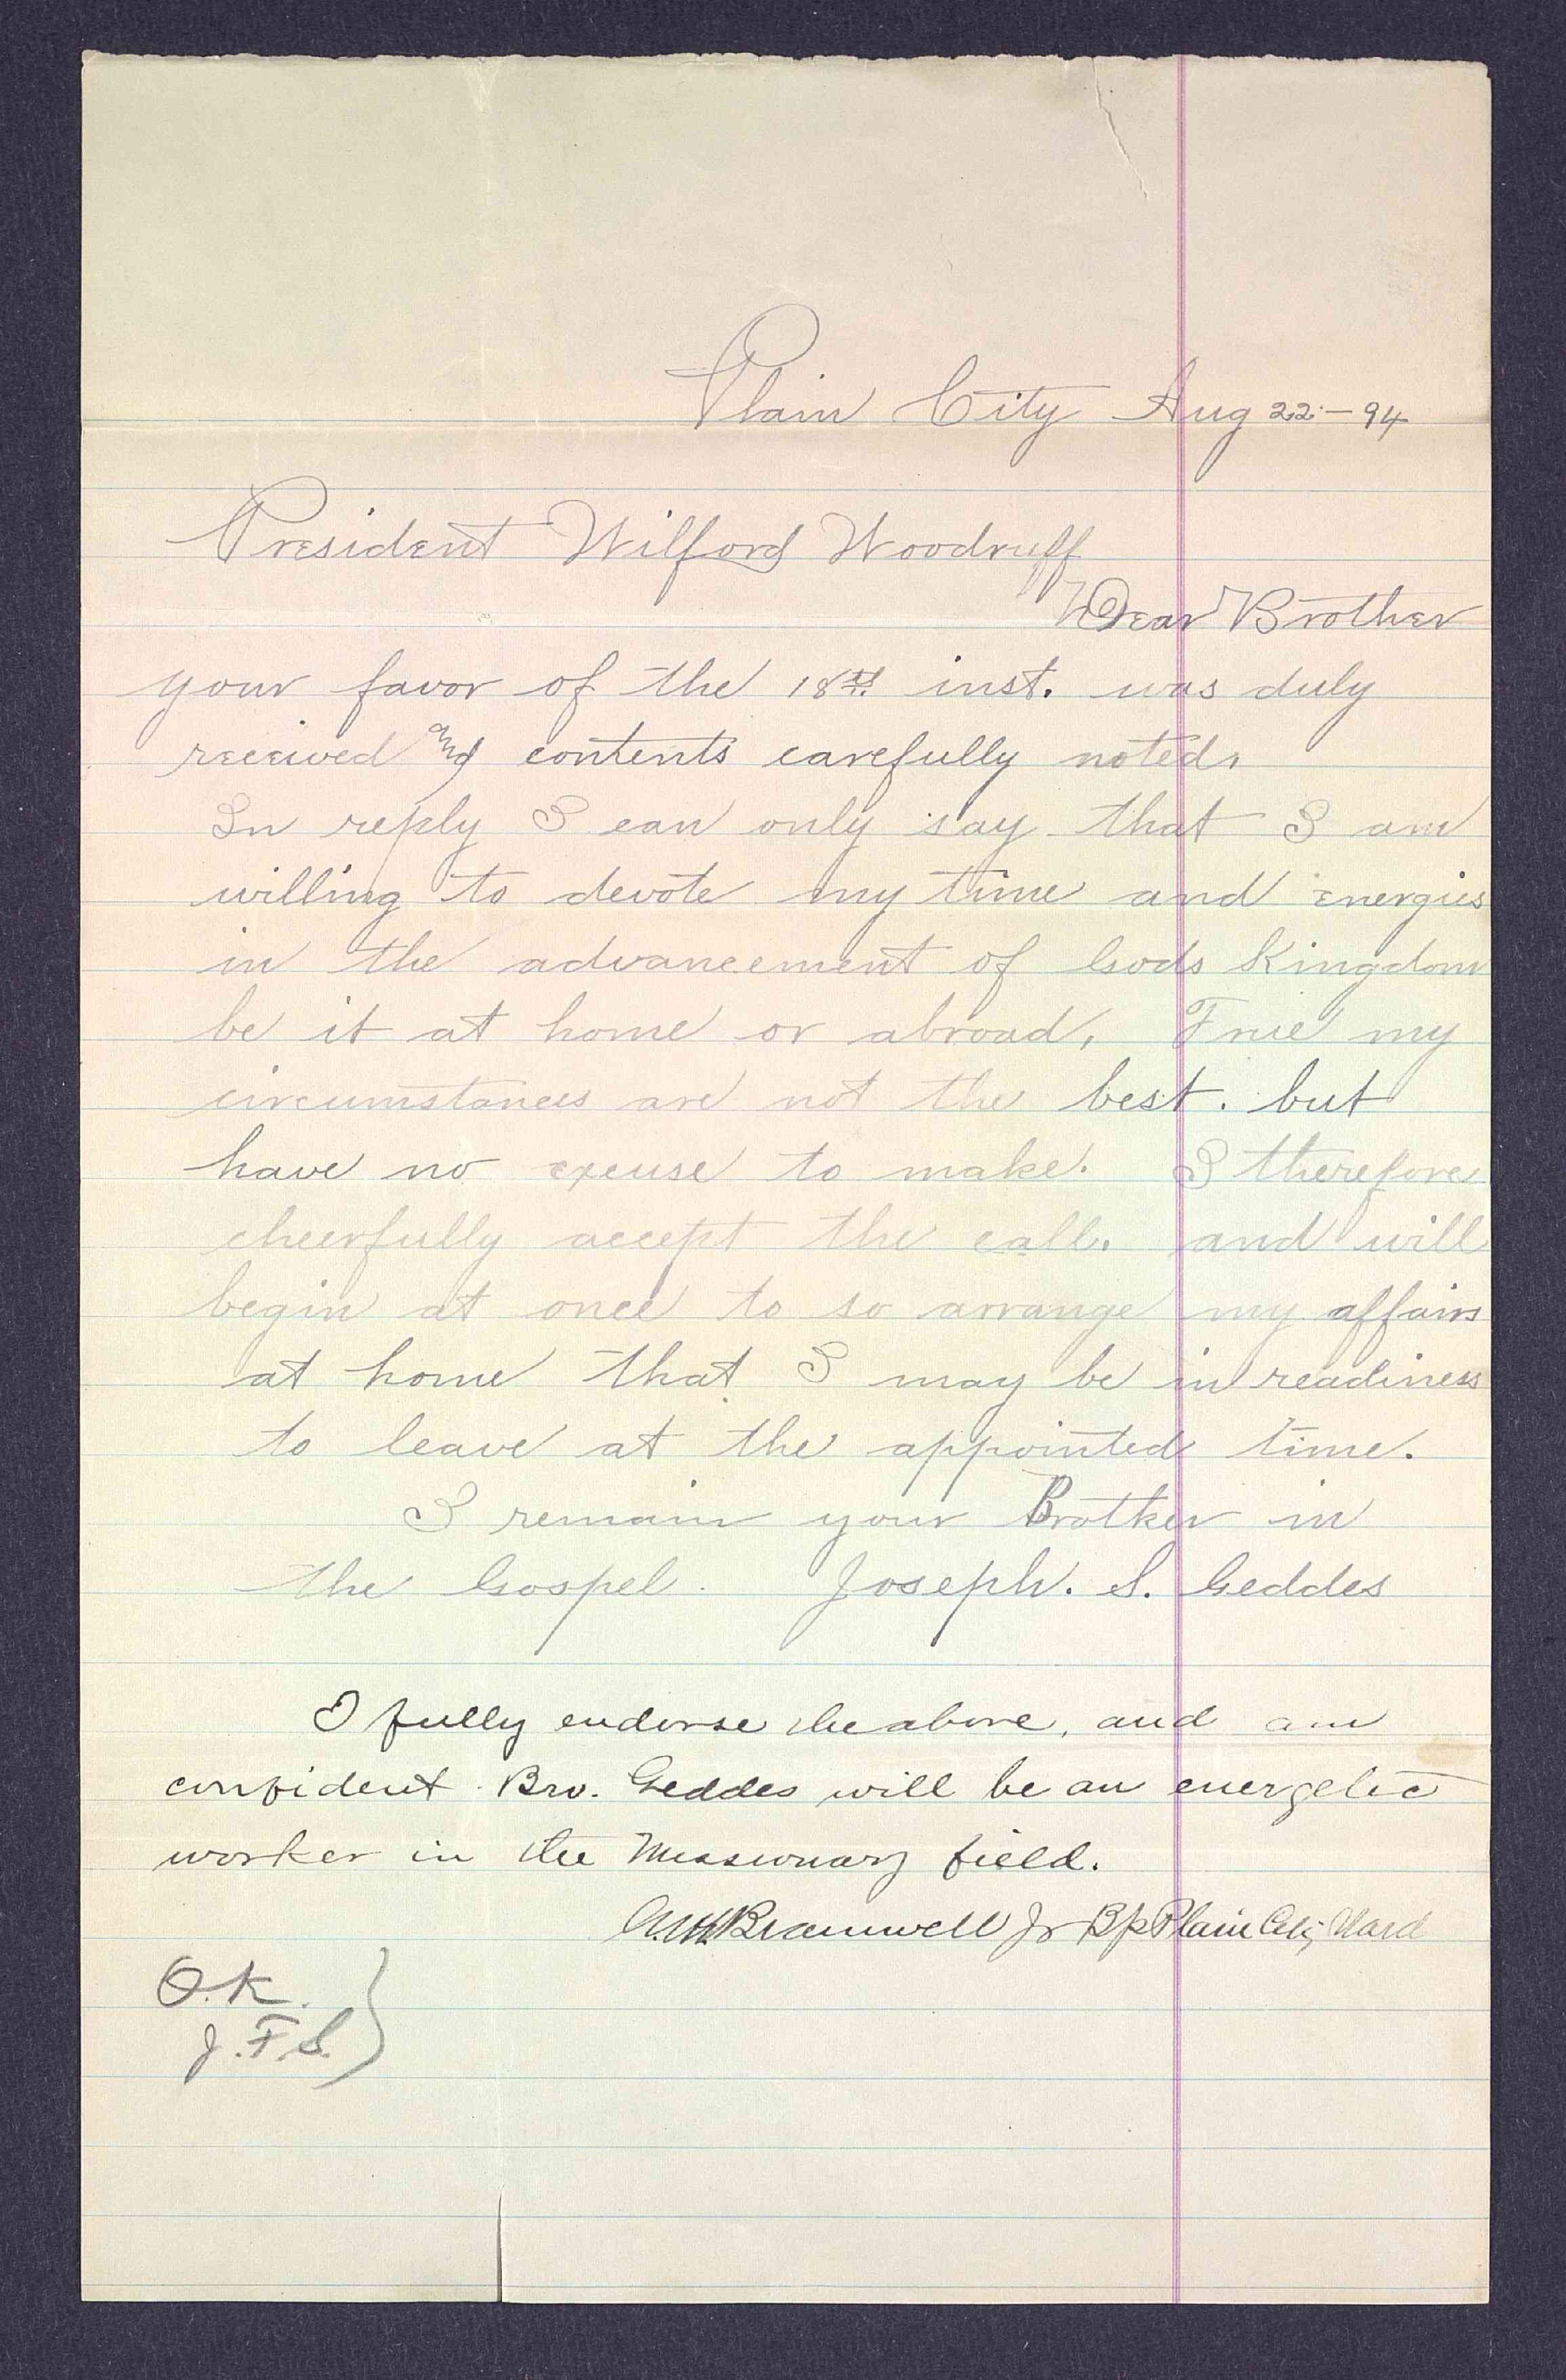 Plain City Aug 22 - 94
President Wilford Woodruff
Dear Brother
your favor of the 18th inst. was duly
received and contents carefully noted.
In reply I can only say that I am
willing to devote my time and energies
in the advancement of Gods Kingdom
be it at home or abroad, True my
circumstances are not the best. but
have no excuse to make. I therefore
cheerfully accept the call. and will
begin at once to so arrange my affairs
at home that I may be in readiness
to leave at the appointed time.
I remain your Brother in
the Gospel. Joseph. S. Geddes
I fully endorse the above, and am
confident Bro. Geddes will be an energetic
worker in the Missionary field.
Bramwell Jr Bp Plain City Ward
O.K.
J.F.S.